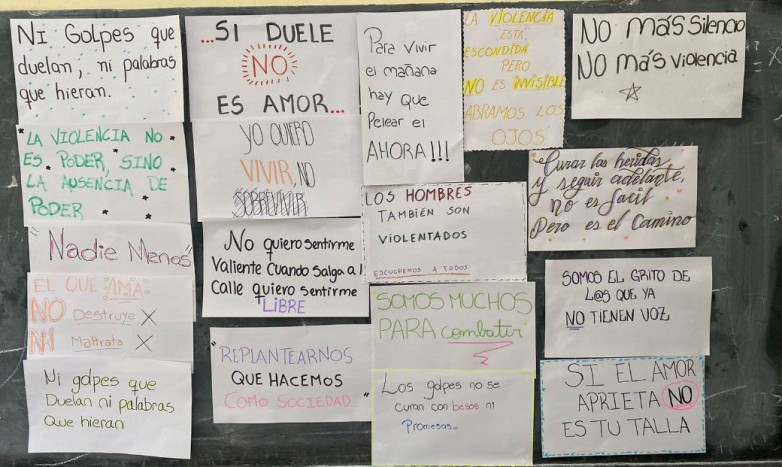 Ni Golpes que
duelan, ni palabras
que hieran.
"LA VIOLENCIA NO
ES PODER, SINO
LA AUSENCIA DE
PODER
"Nadie Menos"
EL QUE "AMA"
NO Destruye X
NI Maltrata X
Ni golpes que
Duelan ni palabras
Que hieran
...SI DUELE
NO
ES AMOR...
YO QUIERO
VIVIR, NO
SOBREVIVIR
No quiero sentirme
Valiente Cuando salga a l
Calle quiero sentirme
LiBRE
"REPLANTEARNOS
QUE HACEMOS
COMO SOCIEDAD"
Para vivir
el mañana
hay que
Pelear el
AHORA!!!
LOS HOMBRES
TAMBIÉN SON
VIOLENTADOS
ESCUCHEMOS A TODOS
SOMOS MUCHOS
PARA combatir
Los golpes no se
curan con besos ni
Promesas...
LA VIOLENCIA
ESTÁ
ESCONDIDA
PERO
NO ES INVISIBLE
ABRAMOS LOS
OJOS
NO más Silencio
NO más violencia
Curar las heridas
y seguir adelante,
no es facil
Pero es el Camino
SOMOS EL GRITO DE
L@S QUE YA
NO TIENEN VOZ
SI EL AMOR
APRIETA NO
ES TU TALLA